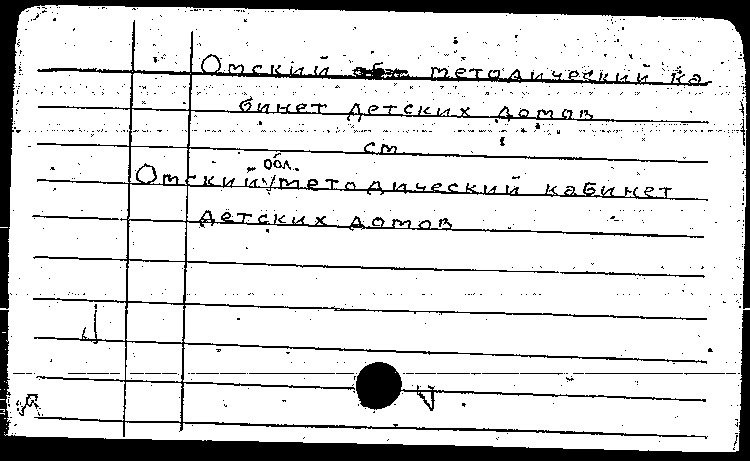 Омский методический ка
бинет детских домов
см.
обл.
Омский методический кабинет
детских домов